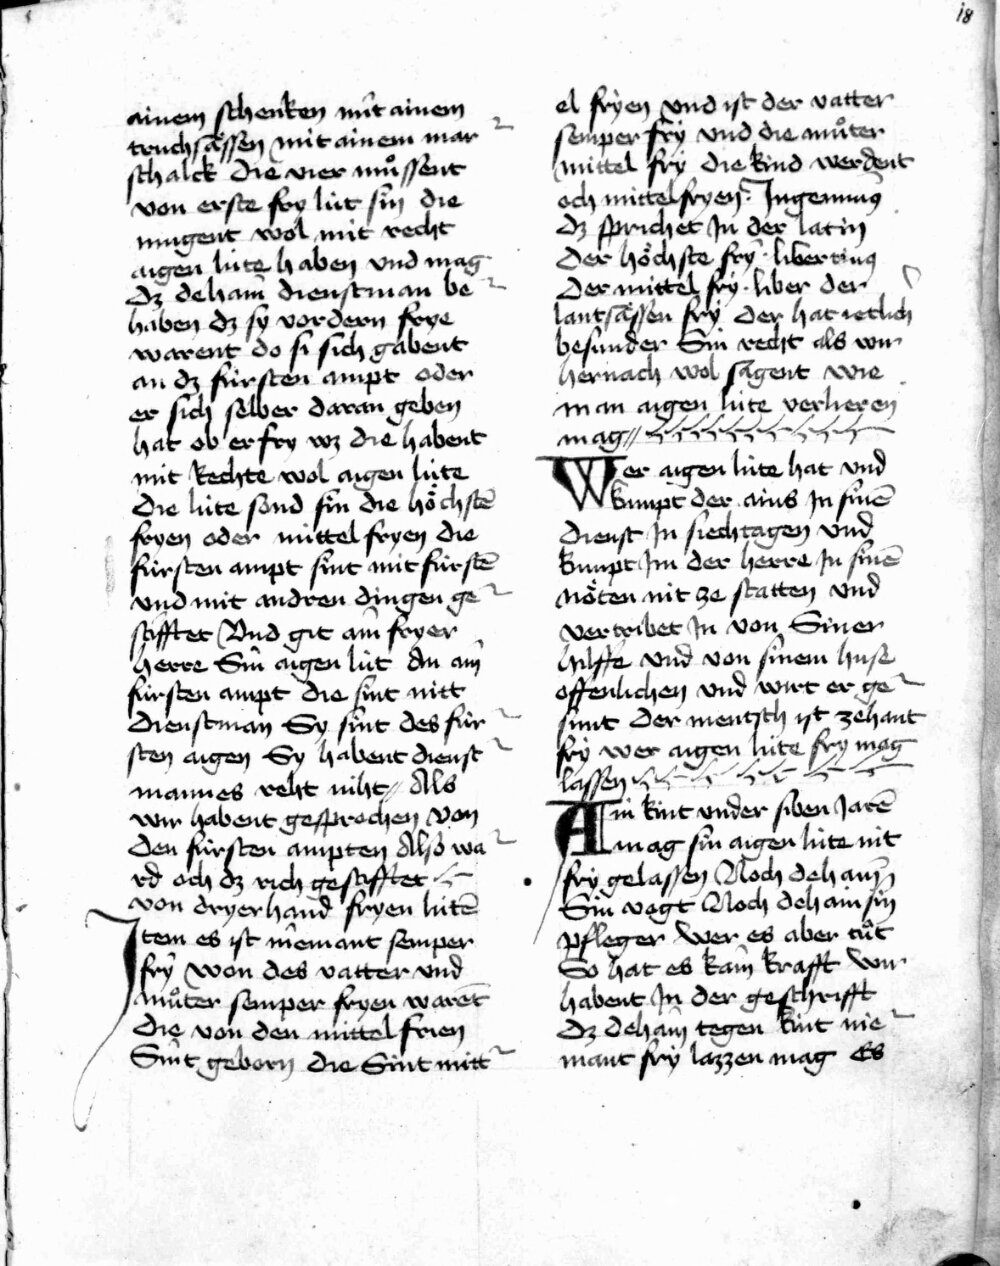 18
ainem schenken mit ainem
truchsässen mit ainem mar
schalck die vier müssent
von erste fry lüt sin die
mugent wol mit recht
aigen lüte haben vnd mag
dz dehain dienstman be
haben dz sy vordern frye
warent do si sich gabent
an dz fürsten ampt oder
er sich selber daran geben
hat ob er fry wz die habent
mit rechte wol aigen lüte
die lüte sond sin die höchstē
fryen oder mittel fryen die
fürsten ampt sint mit fürstē
vnd mit andren dingen ge
stifftet Vnd git ain fryer
herre Sin aigen lüt An ain
fürsten ampt die sint nitt
dienstman Sy sint des für
sten aigen Sy habent dienst
mannes reht niht // Als
wir habent gesprochen von
den fürsten ampten Also wa
rd och dz rich gestifftet
von dryerhand fryen lütē
Item es ist niemant semper
fry won des vatter vnd
můter semper fryen warēt
die von den mittel frien
Sint geborn die Sint mitt
el fryen vnd ist der vatter
semper fry vnd die můter
mittel fry die kind werdent
och mittelfryen. Ingenuus
dz sprichet In der latin
der höchste fry. libertinus
der mittel fry. liber der
lantsässen fry der hat ietlich
besunder Sin recht als wir
hernach wol sagent wie
man aigen lüte verlieren
mag //
Wer aigen lüte hat vnd
kumpt der ains In sinē
dienst In siechtagen vnd
kumpt Im der herre In sinē
nöten nit ze statten vnd
vertribet In von Siner
hilffe vnd von sinem huse
offenlichen vnd wirt er ge
sunt der mentsch ist zehant
fry wer aigen lüte fry mag
lassen
Ain kint vnder siben Jarē
mag sin aigen lüte nit
fry gelassen Noch dehain
Sin vogt Noch dehain sin
pfleger wer es aber tůt
So hat es kain krafft wir
habent In der geschrifft
dz dehain tegen kint nie
mant fry lazzen mag Es